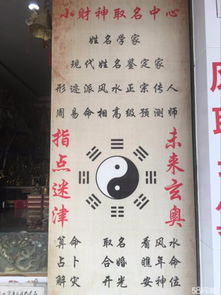 小财神取名中心
姓名学家
现代姓名鉴定家
形迹派风水正宗传人
周易命相高级预测师
指点迷津
未来玄奥
算命 取名 看风水
占卜 合婚 瞧年命
解灾 开光 安神位